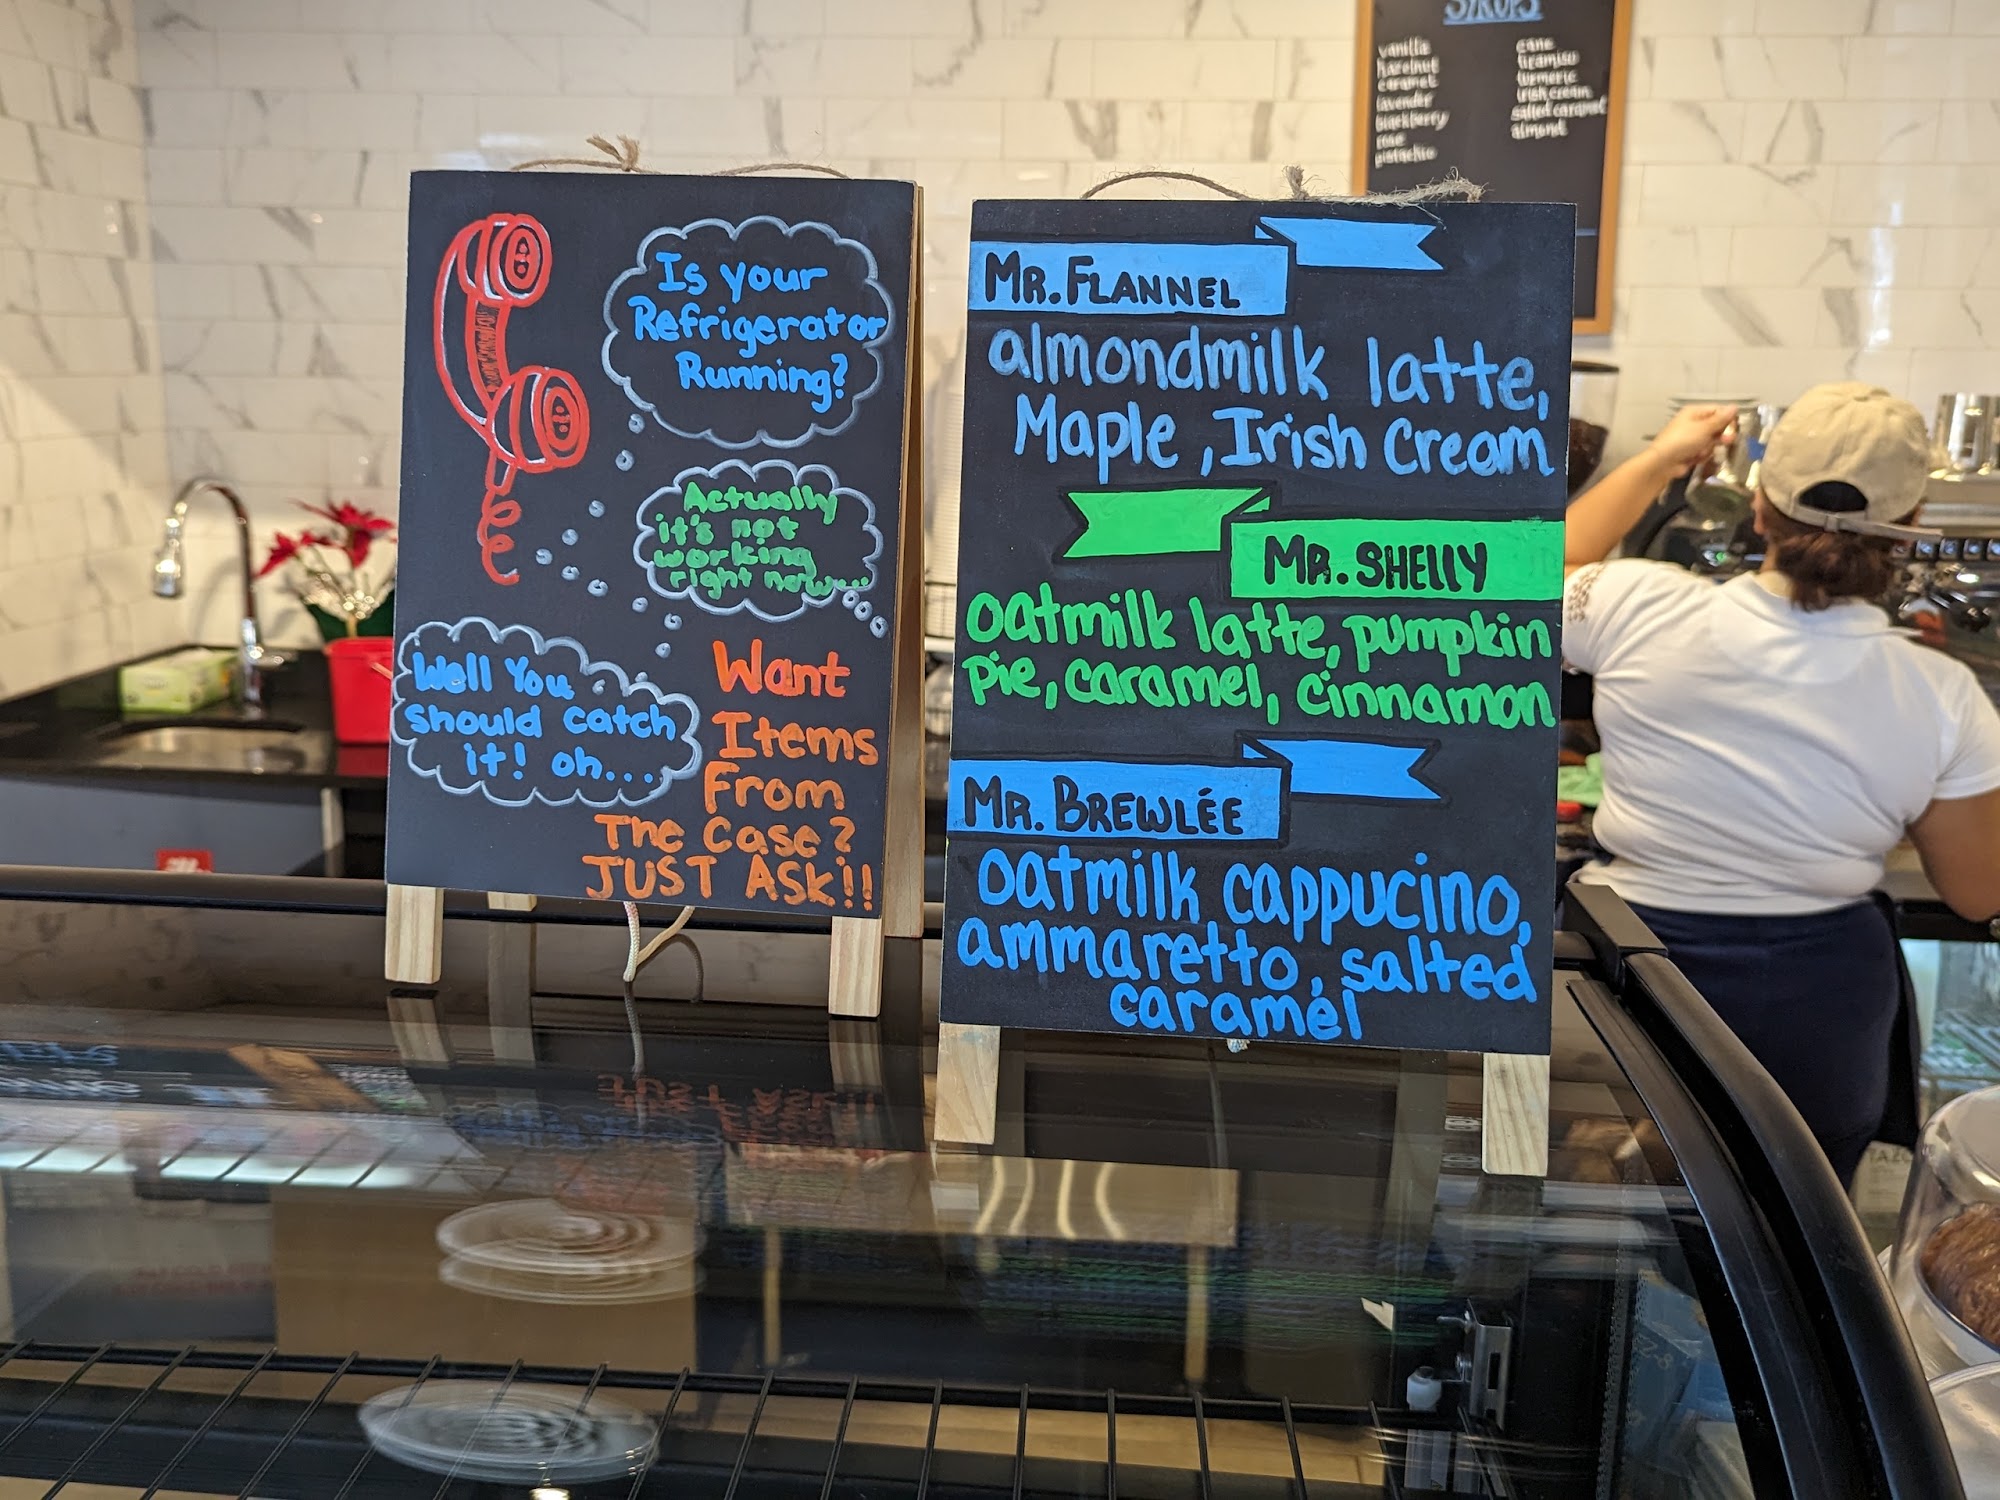 Is your
Refrigerator
Running?
Actually
it's not
working
right now...
Well You
should catch
it! oh...
Want
Items
From
The Case?
JUST ASK!!
MR. FLANNEL
almondmilk latte,
Maple, Irish Cream
MR. SHELLY
oatmilk latte, pumpkin
pie, caramel, cinnamon
MR. BREWLÉE
oatmilk cappucino,
ammaretto, salted
caramel
SYRUPS
vanilla
hazelnut
caramel
lavender
blackberry
rose
pistachio
cane
tiramisu
turmeric
irish cream
salted caramel
almond